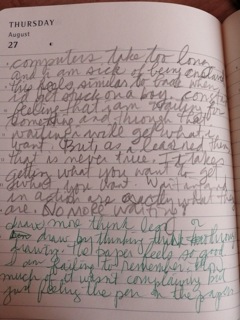 THURSDAY
August
27
computers take too long
and I am sick of being
this feels similar to back when
I'd get stuck on a boy. constant
feeling that I am waiting for
something and through that
waiting I will get what I
want. But, as I learned then
that is never true. It takes
getting what you want to get
what you don't. Waiting and
in action are exactly what they
are. NO MORE WAITING!
draw more think less or
draw by thinking
drawing to paper feels so good
I am failing to remember. How
much it wasn't complaining but
just feeling the pen on the paper